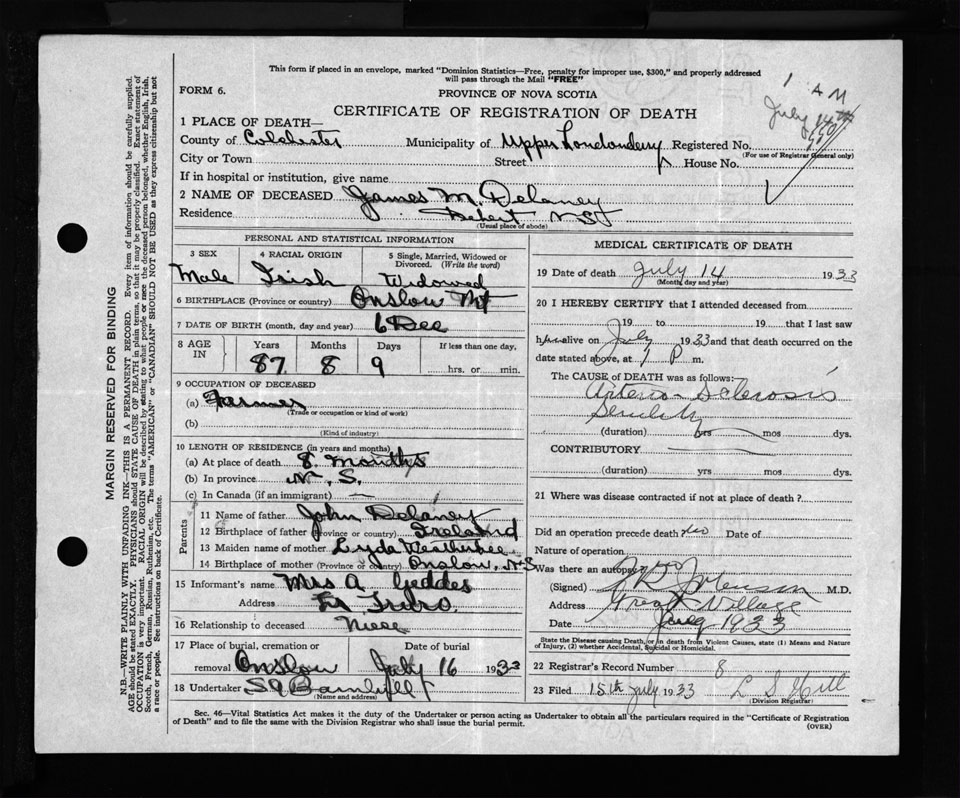 This form if placed in an envelope, marked "Dominion Statistics—Free, penalty for improper use, $300," and properly addressed
will pass through the Mail "FREE"
FORM 6.
PROVINCE OF NOVA SCOTIA
CERTIFICATE OF REGISTRATION OF DEATH
1 A M
July 14th
1 PLACE OF DEATH—
County of Colchester Municipality of Upper Londonderry Registered No.
(For use of Registrar General only)
City or Town Street House No.
If in hospital or institution, give name
2 NAME OF DECEASED James M. Delaney
Residence Debert N.S.
(Usual place of abode)
PERSONAL AND STATISTICAL INFORMATION
3 SEX 4 RACIAL ORIGIN 5 Single, Married, Widowed or Divorced. (Write the word)
Male Irish Widowed
6 BIRTHPLACE (Province or country) Onslow Mt
7 DATE OF BIRTH (month, day and year) 6 Dec
8 AGE IN Years Months Days If less than one day,
87 8 9 hrs. or min.
9 OCCUPATION OF DECEASED
(a) Farmer
(Trade or occupation or kind of work)
(b)
(Kind of industry)
10 LENGTH OF RESIDENCE (in years and months)
(a) At place of death 8 months
(b) In province N. S.
(c) In Canada (if an immigrant) —
Parents
11 Name of father John Delaney
12 Birthplace of father (Province or country) Ireland
13 Maiden name of mother Lyda Weatherbee
14 Birthplace of mother (Province or country) Onslow, N.S
15 Informant's name Mrs A. Geddes
Address Truro.
16 Relationship to deceased Niece
17 Place of burial, cremation or removal Onslow Date of burial July 16 1933
18 Undertaker
(Name and address)
MEDICAL CERTIFICATE OF DEATH
19 Date of death July 14 1933
(Month, day and year)
20 I HEREBY CERTIFY that I attended deceased from
19 to 19 that I last saw
him alive on July 1933 and that death occurred on the
date stated above, at 1 P m.
The CAUSE of DEATH was as follows:
Arterio Sclerosis
Senility
(duration) yrs mos dys.
CONTRIBUTORY
(duration) yrs mos dys.
21 Where was disease contracted if not at place of death?
Did an operation precede death? no Date of
Nature of operation
Was there an autopsy? no
(Signed) M.D.
Address Great Village
Date 1933
State the Disease causing Death, or in death from Violent Causes, state (1) Means and Nature
of Injury, (2) whether Accidental, Suicidal or Homicidal.
22 Registrar's Record Number 8
23 Filed 15th July 1933 L S Hill
(Division Registrar)
Sec. 46—Vital Statistics Act makes it the duty of the Undertaker or person acting as Undertaker to obtain all the particulars required in the "Certificate of Registration
of Death" and to file the same with the Division Registrar who shall issue the burial permit.
(OVER)
MARGIN RESERVED FOR BINDING
N.B.—WRITE PLAINLY WITH UNFADING INK—THIS IS A PERMANENT RECORD. Every item of information should be carefully supplied.
AGE should be stated EXACTLY. PHYSICIANS should STATE CAUSE OF DEATH in plain terms, so that it may be properly classified. Exact statement of
OCCUPATION is very important. RACIAL ORIGIN will be described by stating to what people or race the deceased person belonged, whether English, Irish,
Scotch, French, German, Russian, Ruthenian, etc. The terms "AMERICAN" or "CANADIAN" SHOULD NOT BE USED as they express citizenship but not
a race or people. See instructions on back of Certificate.